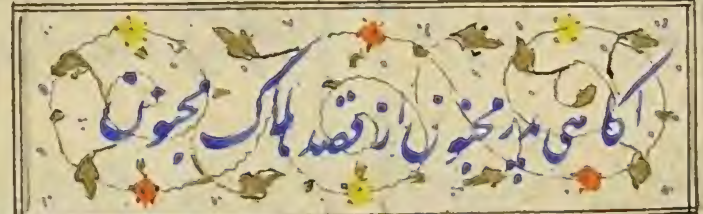 آگاهی پدر مجنون از قصد هلاک مجنون